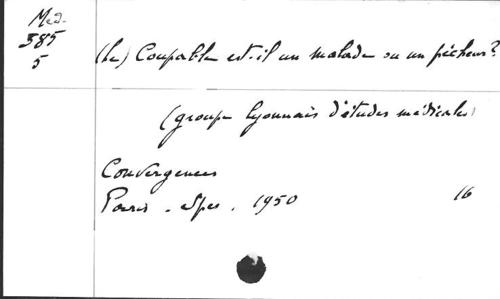 Med.
385
5
(Le) Coupable est-il un malade ou un pécheur?
(groupe lyonnais d'études médicales)
Convergences
Paris - Spes. 1950 16